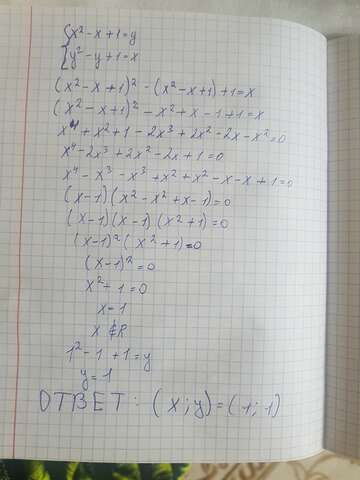 {x²-x+1=y
{y²-y+1=x
(x²-x+1)²-(x²-x+1)+1=x
(x²-x+1)²-x²+x-1+1=x
x⁴+x²+1-2x³+2x²-2x-x²=0
x⁴-2x³+2x²-2x+1=0
x⁴-x³-x³+x²+x²-x-x+1=0
(x-1)(x²-x²+x-1)=0
(x-1)(x-1)(x²+1)=0
(x-1)²(x²+1)=0
(x-1)²=0
x²+1=0
x=1
x∉R
1²-1+1=y
y=1
ОТВЕТ: (x;y)=(1;1)